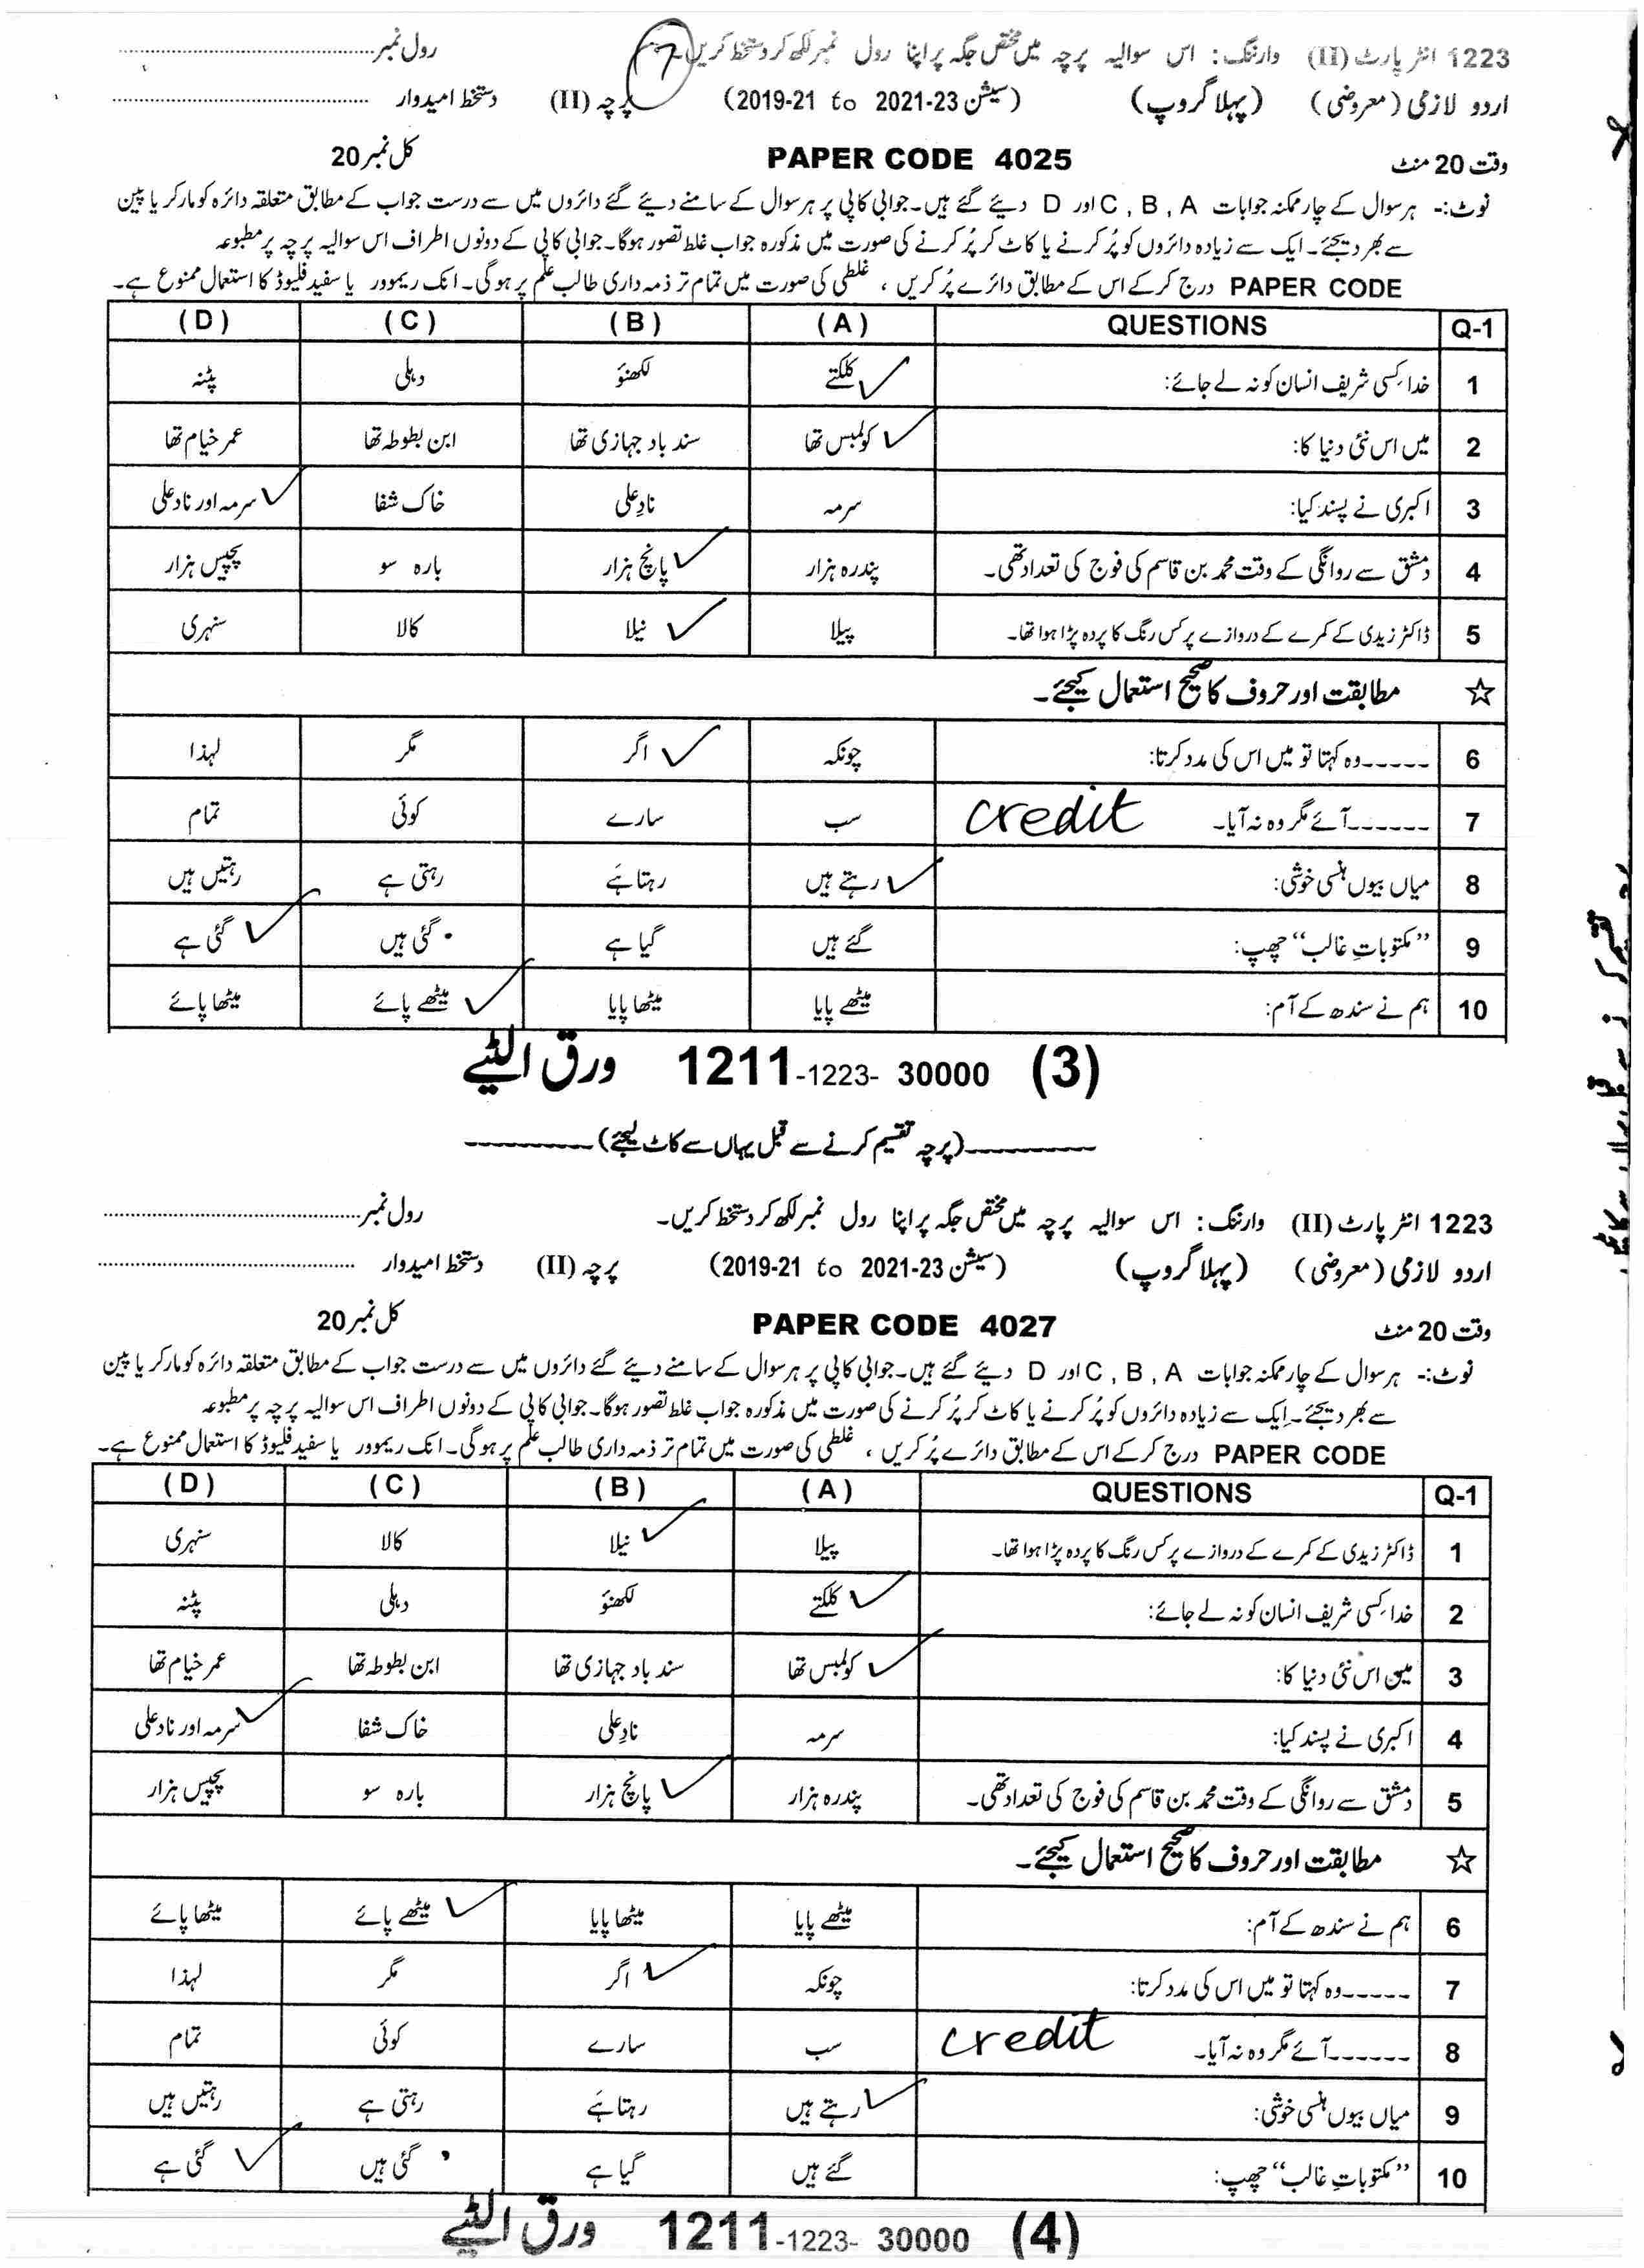 1223 انٹر پارٹ (II) وارننگ: اس سوالیہ پرچہ میں مختص جگہ پر اپنا رول نمبر لکھ کر دستخط کریں۔ رول نمبر
اردو لازمی (معروضی) (پہلا گروپ) (سیشن 2019-21 to 2021-23) پرچہ (II) دستخط امیدوار
وقت 20 منٹ PAPER CODE 4025 کل نمبر 20
نوٹ:- ہر سوال کے چار ممکنہ جوابات A , B , C اور D دیئے گئے ہیں۔ جوابی کاپی پر ہر سوال کے سامنے دیئے گئے دائروں میں سے درست جواب کے مطابق متعلقہ دائرہ کو مارکر یا پین
سے بھر دیجئے۔ ایک سے زیادہ دائروں کو پُر کرنے یا کاٹ کر پُر کرنے کی صورت میں مذکورہ جواب غلط تصور ہوگا۔ جوابی کاپی کے دونوں اطراف اس سوالیہ پرچہ پر مطبوعہ
PAPER CODE درج کر کے اس کے مطابق دائرے پُر کریں ، غلطی کی صورت میں تمام تر ذمہ داری طالب علم پر ہوگی۔ انک ریموور یا سفید فلیوڈ کا استعمال ممنوع ہے۔
Q-1 QUESTIONS (A) (B) (C) (D)
1 خدا کسی شریف انسان کو نہ لے جائے: کلکتے لکھنؤ دہلی پٹنہ
2 میں اس نئی دنیا کا: کولمبس تھا سند باد جہازی تھا ابن بطوطہ تھا عمر خیام تھا
3 اکبری نے پسند کیا: سرمہ نادِعلی خاک شفا سرمہ اور نادعلی
4 دمشق سے روانگی کے وقت محمد بن قاسم کی فوج کی تعداد تھی۔ پندرہ ہزار پانچ ہزار بارہ سو پچیس ہزار
5 ڈاکٹر زیدی کے کمرے کے دروازے پر کس رنگ کا پردہ پڑا ہوا تھا۔ پیلا نیلا کالا سنہری
☆ مطابقت اور حروف کا صحیح استعمال کیجئے۔
6 -----وہ کہتا تو میں اس کی مدد کرتا: چونکہ اگر مگر لہذا
7 ------آئے مگر وہ نہ آیا۔ credit سب سارے کوئی تمام
8 میاں بیوں ہنسی خوشی: رہتے ہیں رہتا ہے رہتی ہے رہتیں ہیں
9 ”مکتوبات غالب“ چھپ: گئے ہیں گیا ہے گئی ہیں گئی ہے
10 ہم نے سندھ کے آم: میٹھے پایا میٹھا پایا میٹھے پائے میٹھا پائے
(3) 1211-1223- 30000 ورق الٹیے
(پرچہ تقسیم کرنے سے قبل یہاں سے کاٹ لیجئے)
1223 انٹر پارٹ (II) وارننگ: اس سوالیہ پرچہ میں مختص جگہ پر اپنا رول نمبر لکھ کر دستخط کریں۔ رول نمبر
اردو لازمی (معروضی) (پہلا گروپ) (سیشن 2019-21 to 2021-23) پرچہ (II) دستخط امیدوار
وقت 20 منٹ PAPER CODE 4027 کل نمبر 20
نوٹ:- ہر سوال کے چار ممکنہ جوابات A , B , C اور D دیئے گئے ہیں۔ جوابی کاپی پر ہر سوال کے سامنے دیئے گئے دائروں میں سے درست جواب کے مطابق متعلقہ دائرہ کو مارکر یا پین
سے بھر دیجئے۔ ایک سے زیادہ دائروں کو پُر کرنے یا کاٹ کر پُر کرنے کی صورت میں مذکورہ جواب غلط تصور ہوگا۔ جوابی کاپی کے دونوں اطراف اس سوالیہ پرچہ پر مطبوعہ
PAPER CODE درج کر کے اس کے مطابق دائرے پُر کریں ، غلطی کی صورت میں تمام تر ذمہ داری طالب علم پر ہوگی۔ انک ریموور یا سفید فلیوڈ کا استعمال ممنوع ہے۔
Q-1 QUESTIONS (A) (B) (C) (D)
1 ڈاکٹر زیدی کے کمرے کے دروازے پر کس رنگ کا پردہ پڑا ہوا تھا۔ پیلا نیلا کالا سنہری
2 خدا کسی شریف انسان کو نہ لے جائے: کلکتے لکھنؤ دہلی پٹنہ
3 مین اس نئی دنیا کا: کولمبس تھا سند باد جہازی تھا ابن بطوطہ تھا عمر خیام تھا
4 اکبری نے پسند کیا: سرمہ نادِعلی خاک شفا سرمہ اور نادعلی
5 دمشق سے روانگی کے وقت محمد بن قاسم کی فوج کی تعداد تھی۔ پندرہ ہزار پانچ ہزار بارہ سو پچیس ہزار
☆ مطابقت اور حروف کا صحیح استعمال کیجئے۔
6 ہم نے سندھ کے آم: میٹھے پایا میٹھا پایا میٹھے پائے میٹھا پائے
7 -----وہ کہتا تو میں اس کی مدد کرتا: چونکہ اگر مگر لہذا
8 ------آئے مگر وہ نہ آیا۔ credit سب سارے کوئی تمام
9 میاں بیوں ہنسی خوشی: رہتے ہیں رہتا ہے رہتی ہے رہتیں ہیں
10 ”مکتوبات غالب“ چھپ: گئے ہیں گیا ہے گئی ہیں گئی ہے
(4) 1211-1223- 30000 ورق الٹیے